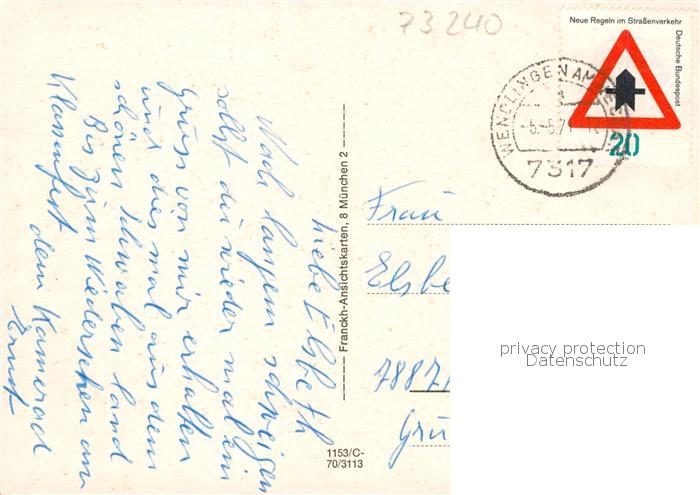 73 240
Neue Regeln im Straßenverkehr
Deutsche Bundespost
20
WENDLINGEN AM
-5.-5.71
7317
Liebe Elsbeth
Nach langem schweigen
sollst du wieder mal ein
Gruss von mir erhalten
und dies mal aus dem
schönen Schwabenland
Bis zum Wiedersehen am
Klassenfest
dein Kamerad
Ernst
Franckh-Ansichtskarten, 8 München 2
1153/C-
70/3113
Frau
Elsbe
7887
privacy protection
Datenschutz